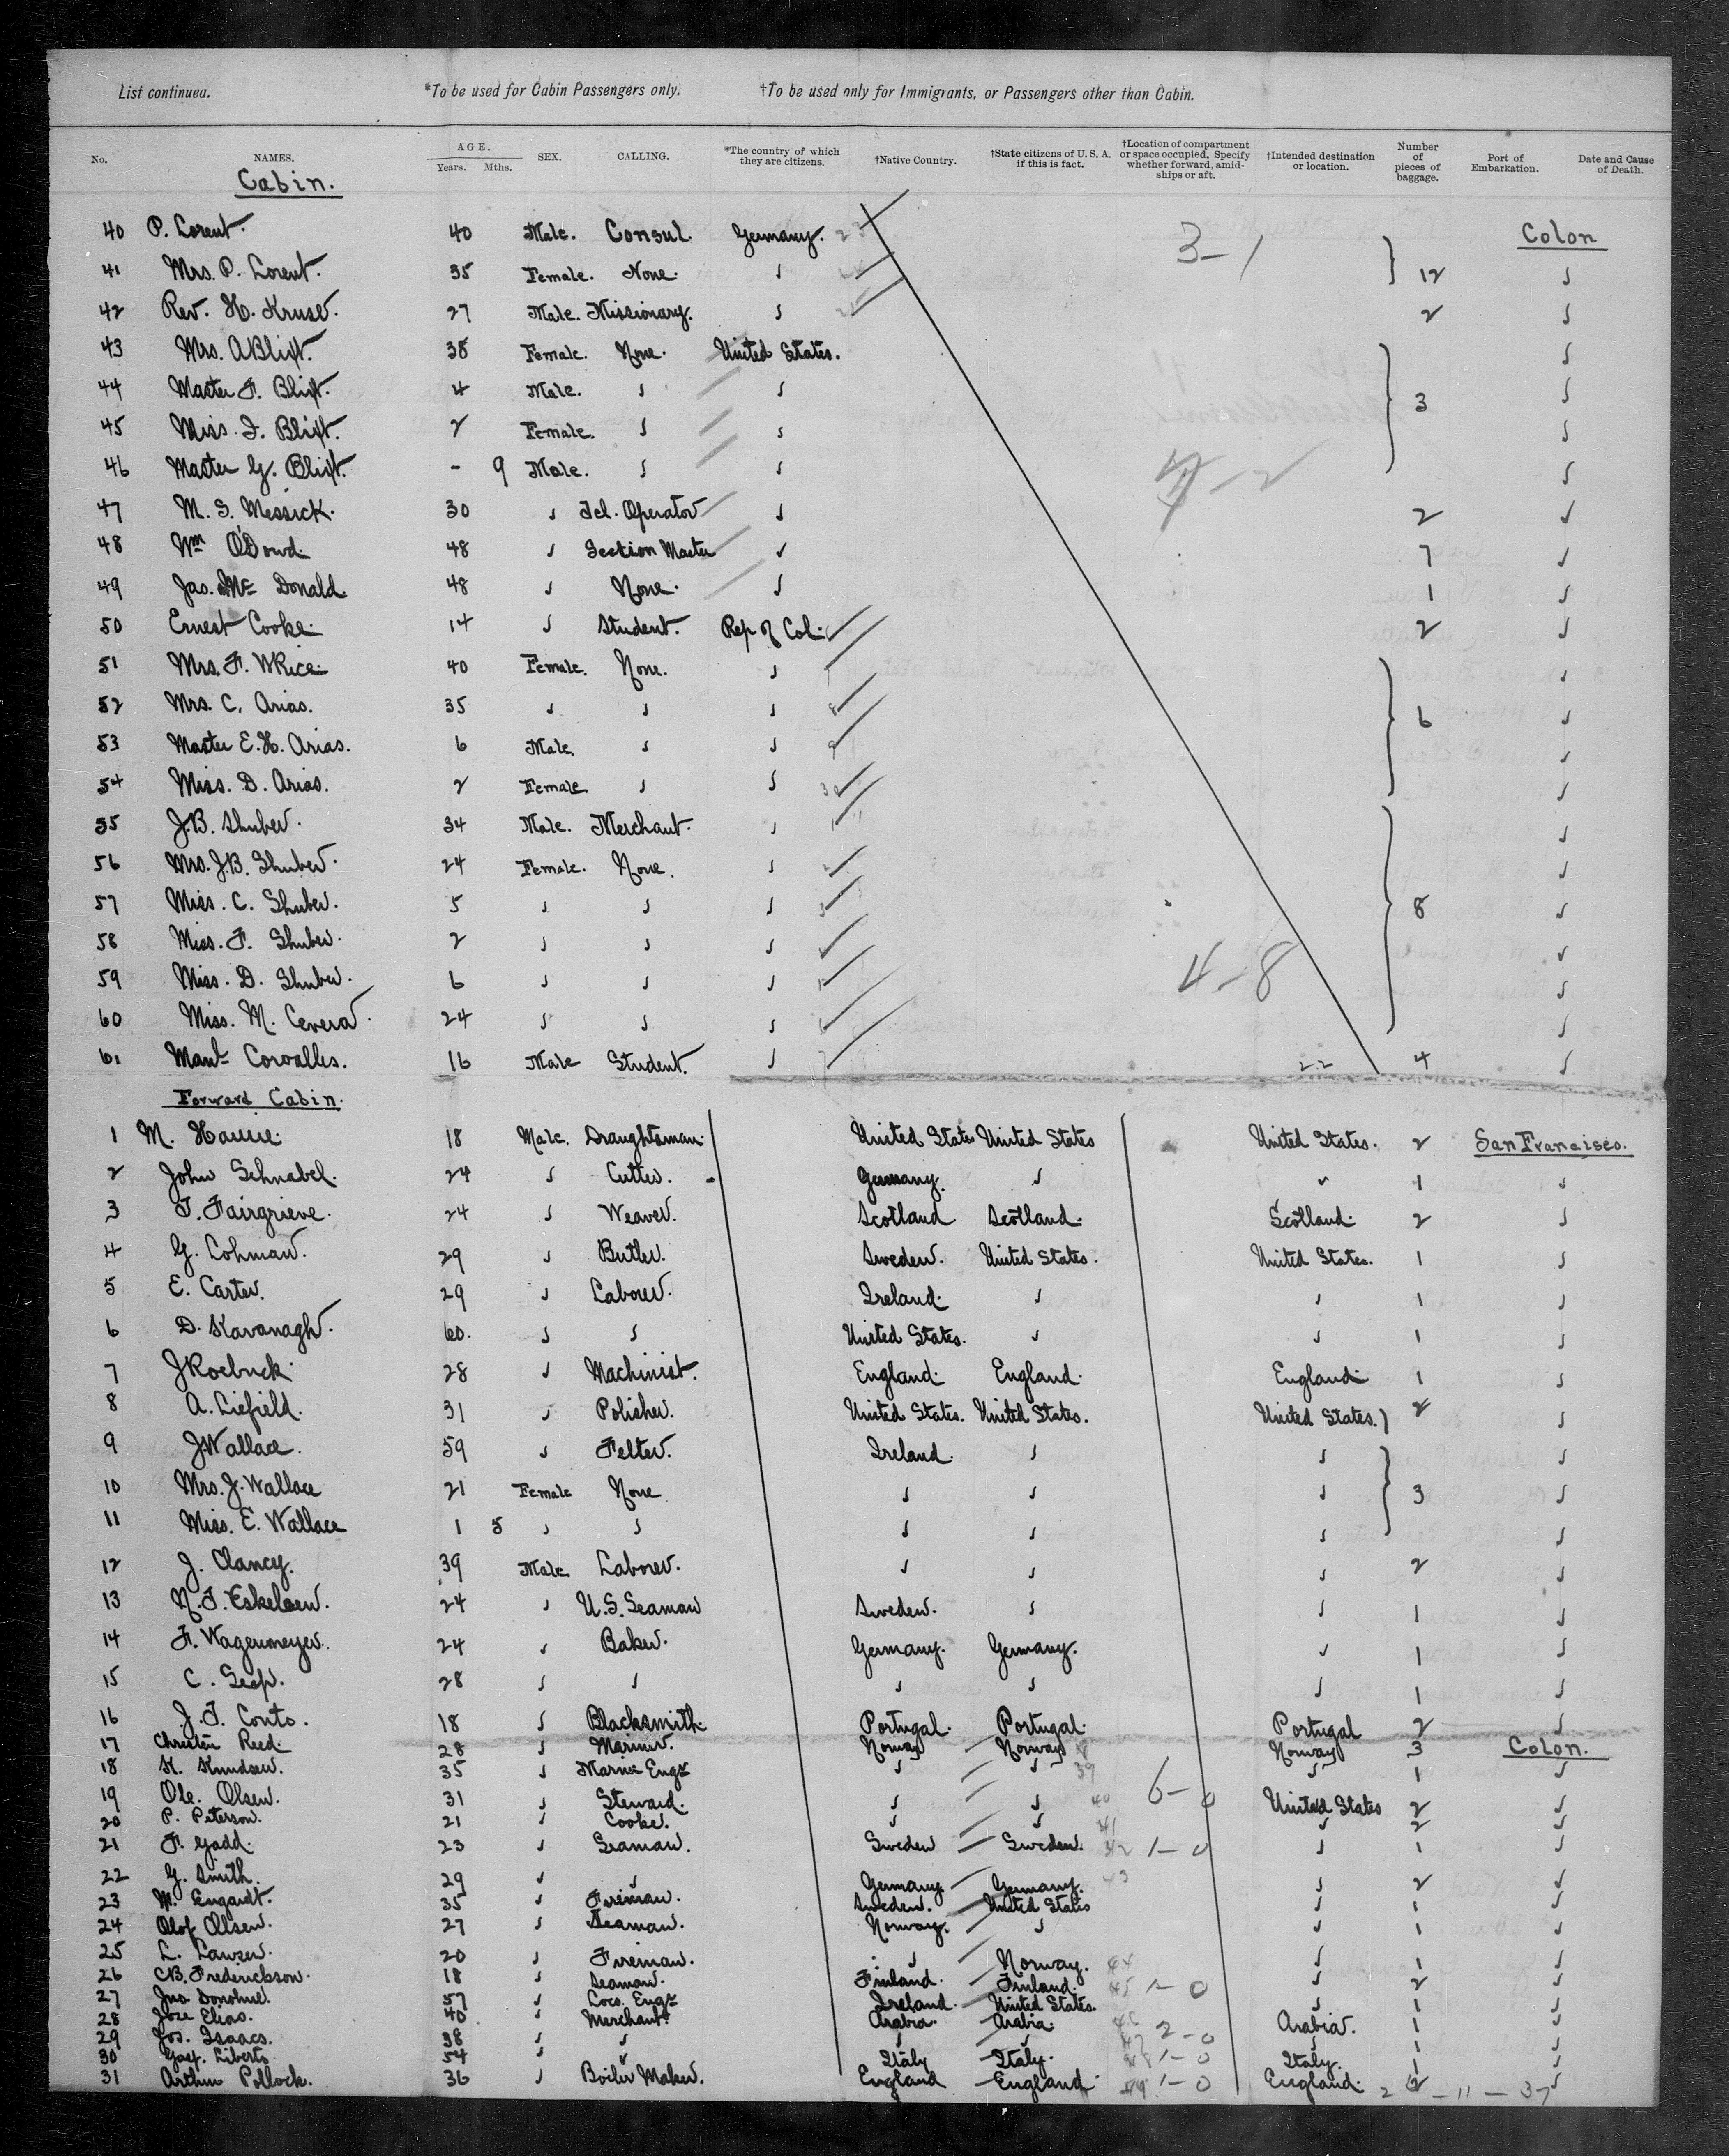 List continued. *To be used for Cabin Passengers only. †To be used only for Immigrants, or Passengers other than Cabin.
No. NAMES. AGE. Years. Mths. SEX. CALLING. *The country of which they are citizens. †Native Country. †State citizens of U. S. A. if this is fact. †Location of compartment or space occupied. Specify whether forward, amidships or aft. †Intended destination or location. Number of pieces of baggage. Port of Embarkation. Date and Cause of Death.
Cabin.
40 P. Lorent. 40 Male. Consul. Germany. 3-1 Colon
41 Mrs. P. Lorent. 35 Female. None. ✓ 12 ✓
42 Rev. H. Kruse. 27 Male. Missionary. ✓ 2 ✓
43 Mrs. A Blixt. 38 Female. None. United States. ✓
44 Master F. Blixt. 4 Male. ✓ ✓ 3 ✓
45 Miss. I. Blixt. 2 Female. ✓ ✓ ✓
46 Master G. Blixt. - 9 Male. ✓ ✓ ✓
47 M. S. Messick. 30 ✓ Tel. Operator ✓ 2 ✓
48 Wm O'Dowd. 48 ✓ Section Master ✓ 7 ✓
49 Jas. Mc Donald. 48 ✓ None. ✓ 1 ✓
50 Ernest Cooke. 14 ✓ Student. Rep of Col. 2 ✓
51 Mrs. F. W Rice. 40 Female. None. ✓ ✓
52 Mrs. C. Arias. 35 ✓ ✓ ✓ 6 ✓
53 Master E. H. Arias. 6 Male. ✓ ✓ ✓
54 Miss. D. Arias. 2 Female. ✓ ✓ ✓
55 J. B. Shuber. 34 Male. Merchant. ✓ ✓
56 Mrs. J. B. Shuber. 24 Female. None. ✓ ✓
57 Miss. C. Shuber. 5 ✓ ✓ ✓ 8 ✓
58 Miss. F. Shuber. 2 ✓ ✓ ✓ ✓
59 Miss. D. Shuber. 6 ✓ ✓ ✓ 4-8 ✓
60 Miss. M. Cevera. 24 ✓ ✓ ✓ ✓
61 Manl Corvalles. 16 Male Student. ✓ 22 4 ✓
Forward Cabin.
1 M. 18 Male. Draughtsman. United States United States United States. 2 San Francisco.
2 John Schnabel. 24 ✓ Cutter. Germany. ✓ ✓ 1 ✓
3 T. Fairgrieve. 24 ✓ Weaver. Scotland Scotland. Scotland. 2 ✓
4 G. Lohman. 29 ✓ Butler. Sweden. United States. United States. 1 ✓
5 E. Carter. 29 ✓ Laborer. Ireland. ✓ ✓ 1 ✓
6 D. Kavanagh. 60. ✓ ✓ United States. ✓ ✓ 1 ✓
7 J Roebuck. 28 ✓ Machinist. England. England. England. 1 ✓
8 A. Liefield. 31 ✓ Polisher. United States. United States. United States. 2 ✓
9 J. Wallace. 59 ✓ Felter. Ireland. ✓ ✓ ✓
10 Mrs. J. Wallace 21 Female None. ✓ ✓ ✓ 3 ✓
11 Miss. E. Wallace 1 5 ✓ ✓ ✓ ✓ ✓ ✓
12 J. Clancy. 39 Male. Laborer. ✓ ✓ ✓ 2 ✓
13 N. T. Eskelsen. 24 ✓ U. S. Seaman Sweden. ✓ ✓ 1 ✓
14 F. Wagenmeyer. 24 ✓ Baker. Germany. Germany. ✓ 1 ✓
15 C. Seep. 28 ✓ ✓ ✓ ✓ ✓ 1 ✓
16 J. T. Conto. 18 ✓ Blacksmith. Portugal. Portugal. Portugal 2 ✓
17 Christen Reed. 28 ✓ Mariner. Norway Norway Norway 3 Colon.
18 K. Knudsen. 35 ✓ Marine Engr ✓ ✓ 39 ✓ 1 ✓
19 Ole. Olsen. 31 ✓ Steward. ✓ ✓ 40 6-0 United States 2 ✓
20 P. Peterson. 21 ✓ Cooke. ✓ ✓ 41 ✓ 2 ✓
21 F. Gadd. 23 ✓ Seaman. Sweden Sweden. 42 1-0 ✓ 1 ✓
22 G. Smith. 29 ✓ ✓ Germany Germany. 43 ✓ 2 ✓
23 M. Engardt. 35 ✓ Fireman. Sweden. United States ✓ 1 ✓
24 Olof Olsen. 27 ✓ Seaman. Norway. ✓ ✓ 1 ✓
25 L. Lawsen. 20 ✓ Fireman. ✓ Norway. 44 ✓ 1 ✓
26 C. B. Frederickson. 18 ✓ Seaman. Finland. Finland. 45 1-0 ✓ 2 ✓
27 Jno Donohue. 57 ✓ Loco. Engr Ireland. United States. ✓ 1 ✓
28 Jose Elias. 40 ✓ Merchant. Arabia. Arabia. 46 Arabia. 1 ✓
29 Jos. Isaacs. 38 ✓ ✓ ✓ ✓ 47 2-0 ✓ 1 ✓
30 Liberto 54 ✓ ✓ Italy Italy. 48 1-0 Italy. 1 ✓
31 Arthur Pollock. 36 ✓ Boiler Maker. England England. 49 1-0 England. 2 ✓